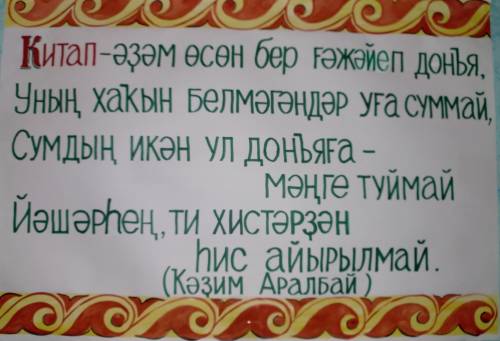 Китап-әҙәм өсөн бер ғәжәйеп донъя,
Уның хаҡын белмәгәндәр уға суммай,
Сумдың икән ул донъяға -
мәңге туймай
Йәшәрһең, ти хистәрҙән
һис айырылмай.
(Ҡәҙим Аралбай)